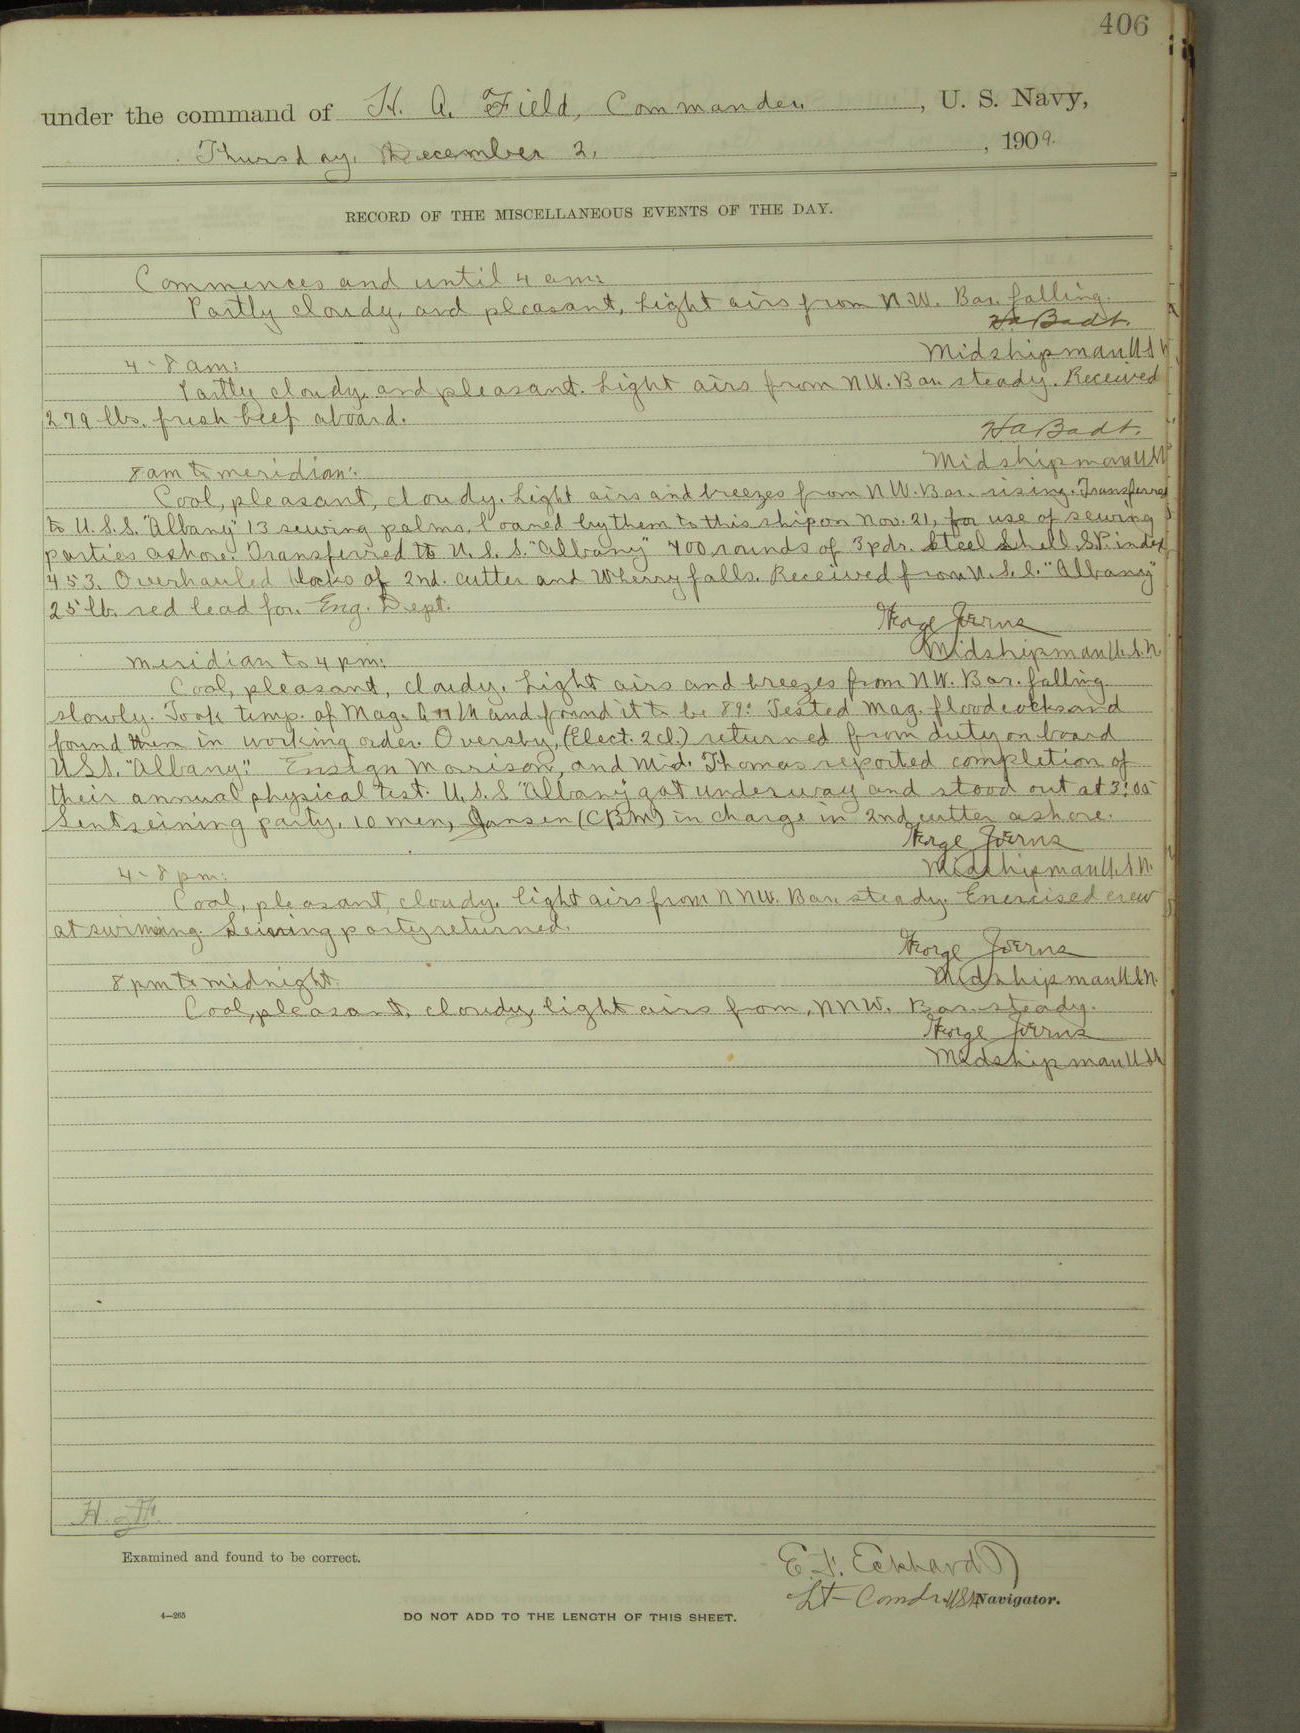 406
under the command of H. A. Field, Commander, U. S. Navy,
Thursday, December 2, 1909.
RECORD OF THE MISCELLANEOUS EVENTS OF THE DAY.
Commences and until 4 am:
Partly cloudy, and pleasant, Light airs from N.W. Bar. falling.
Ha Badt.
Midshipman U.S.N
4-8 am:
Partly cloudy and pleasant. Light airs from NW. Bar. steady. Received
279 lbs. fresh beef aboard.
Ha Badt.
Midshipman USN
8 am to meridian:
Cool, pleasant, cloudy. Light airs and breezes from NW. Bar. rising. Transferred
to U.S.S. "Albany" 13 sewing palms, loaned by them to this ship on Nov. 21, for use of sewing
parties ashore. Transferred to U.S.S. "Albany" 400 rounds of 3 pdr. Steel Shell, S.P. index
453. Overhauled blocks of 2nd. cutter and Wherry falls. Received from U.S.S. "Albany"
25 lb. red lead for Eng. Dept.
George Joerns
Midshipman U.S.N.
meridian to 4 pm:
Cool, pleasant, cloudy. Light airs and breezes from NW. Bar. falling
slowly. Took temp. of Mag. and found it to be 89°. Tested mag. floodcocks and
found them in working order. Oversby, (Elect. 2cl.) returned from duty on board
U.S.S. "Albany." Ensign Morrison, and Mid. Thomas reported completion of
their annual physical test. U.S.S "Albany" got underway and stood out at 3:05
Sent seining party, 10 men, Jansen (CBM) in charge in 2nd cutter ashore.
George Joerns
Midshipman U.S.N.
4-8 pm:
Cool, pleasant, cloudy. light airs from NNW. Bar. steady. Exercised crew
at swimming. Seining party returned.
George Joerns
Midshipman U.S.N.
8 pm to midnight.
Cool, pleasant, cloudy, light airs from, NNW. Bar. steady.
George Joerns
Midshipman USN
Examined and found to be correct.
E. F. Eckhardt
Lt-Comdr. USN Navigator.
4—265
DO NOT ADD TO THE LENGTH OF THIS SHEET.